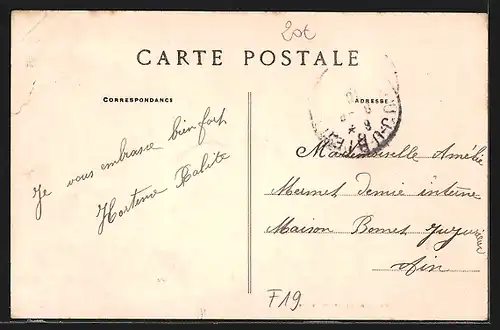 20€
CARTE POSTALE
CORRESPONDANCE
ADRESSE
Je vous embrasse bien fort
Hortense
Mademoiselle Amélie
Mermet demie interne
Maison Bornet Jujurieux
Ain
F19